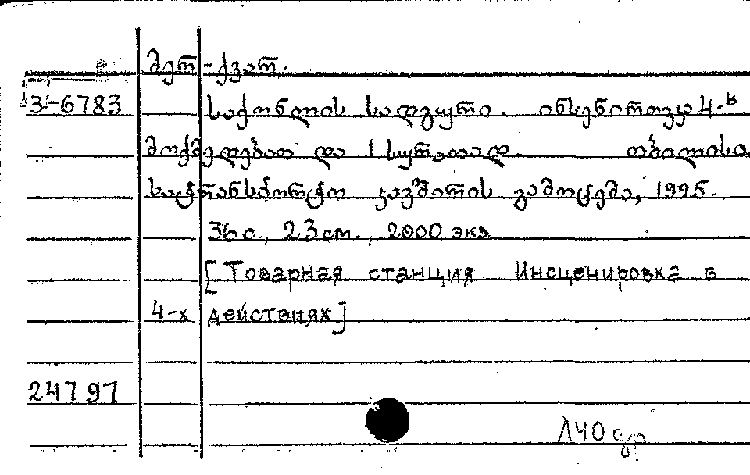 მერ-კვარ.
3-6783 საქონლის სადგური. ინსენიროვკა 4-ს
მოქმედებათ და 1 სურათად. თბილისი
სატრანსპორტო კავშირის გამოცემა, 1925.
36 с., 23 cm., 2000 экз
[Товарная станция Инсценировка в
4-х действиях]
24797
Л40 გр